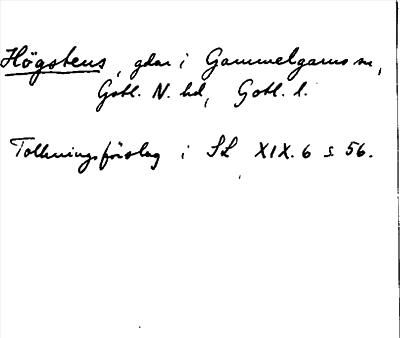 Högstens, gdar i Gammelgarns sn,
Gotl. N. hd, Gotl. l.
Tolkningsförslag i SL XIX. 6 s 56.